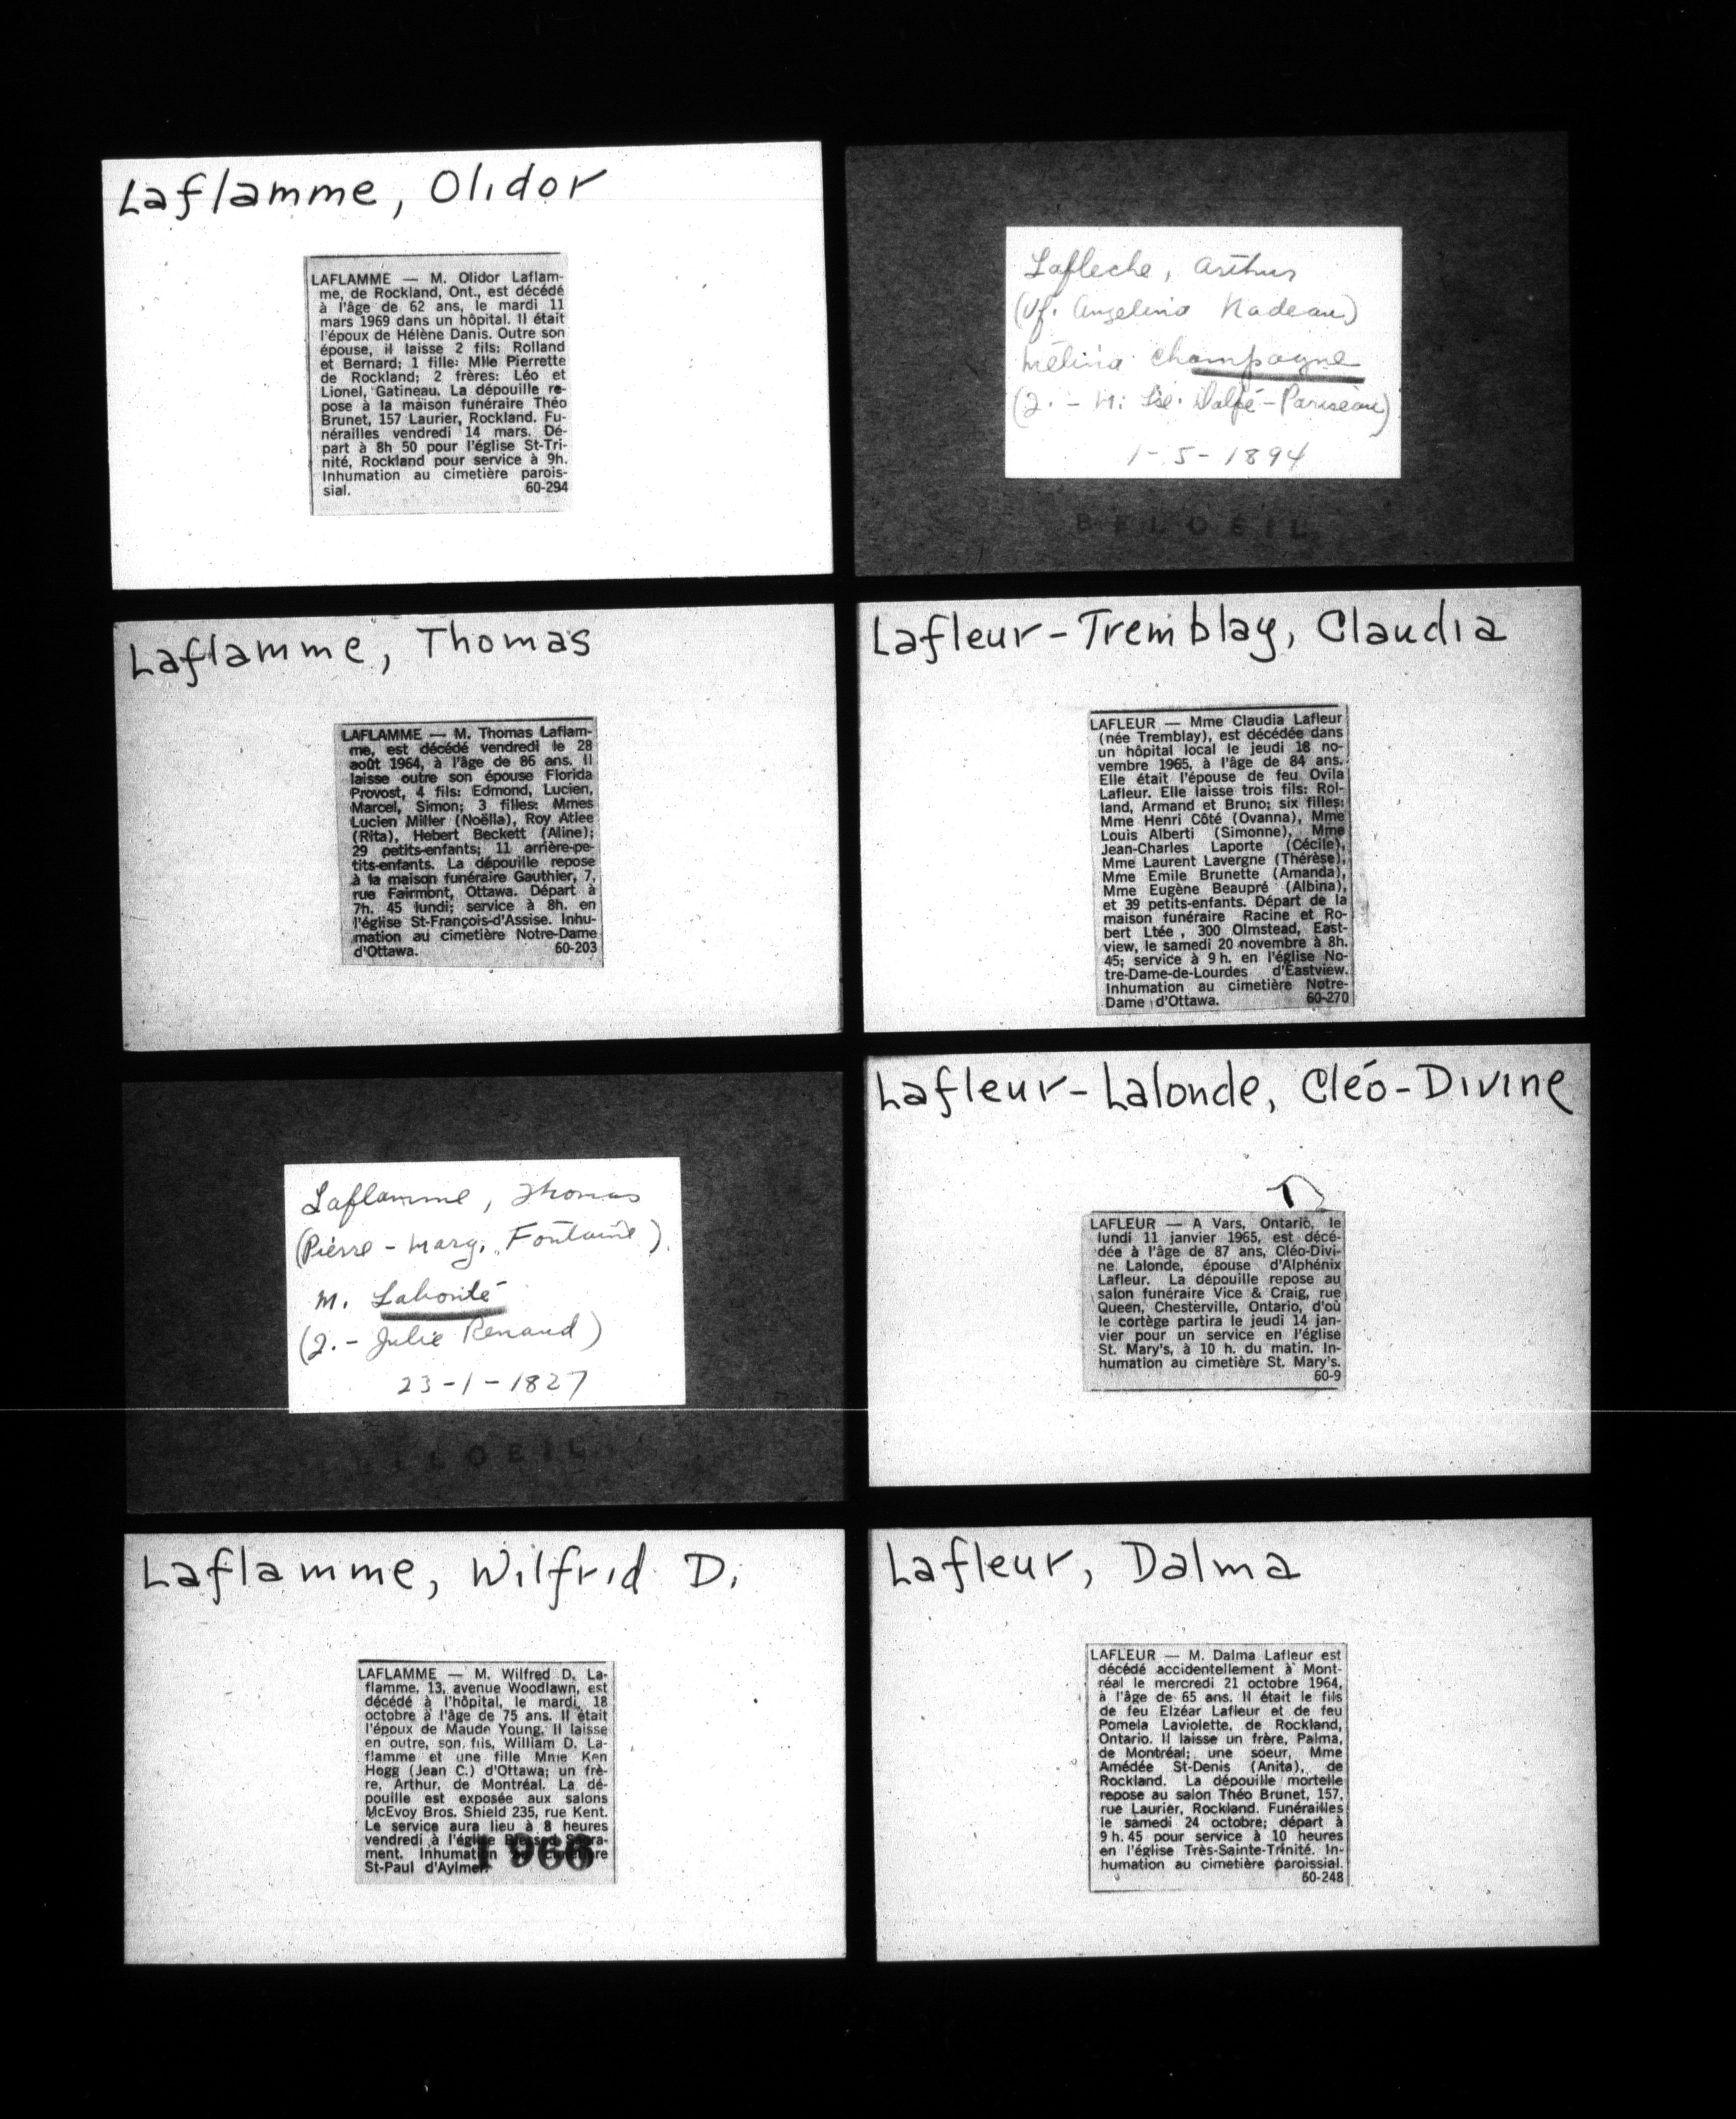 Laflamme, Olidor
LAFLAMME — M. Olidor Laflam-
me, de Rockland, Ont., est décédé
à l'âge de 62 ans, le mardi 11
mars 1969 dans un hôpital. Il était
l'époux de Hélène Danis. Outre son
épouse, il laisse 2 fils: Rolland
et Bernard; 1 fille: Mlle Pierrette
de Rockland; 2 frères: Léo et
Lionel, Gatineau. La dépouille re-
pose à la maison funéraire Théo
Brunet, 157 Laurier, Rockland. Fu-
nérailles vendredi 14 mars. Dé-
part à 8h 50 pour l'église St-Tri-
nité, Rockland pour service à 9h.
Inhumation au cimetière parois-
sial. 60-294
Laflamme, Thomas
LAFLAMME — M. Thomas Laflam-
me, est décédé vendredi le 28
août 1964, à l'âge de 86 ans. Il
laisse outre son épouse Florida
Provost, 4 fils: Edmond, Lucien,
Marcel, Simon; 3 filles: Mmes
Lucien Miller (Noëlla), Roy Atlee
(Rita), Hebert Beckett (Aline);
29 petits-enfants; 11 arrière-pe-
tits-enfants. La dépouille repose
à la maison funéraire Gauthier, 7,
rue Fairmont, Ottawa. Départ à
7h. 45 lundi; service à 8h. en
l'église St-François-d'Assise. Inhu-
mation au cimetière Notre-Dame
d'Ottawa. 60-203
Laflamme, Thomas
(Pierre - Marg. Fontaine)
M. Labonté
(J. - Julie Renaud)
23-1-1827
BELOEIL
Laflamme, Wilfrid D.
LAFLAMME — M. Wilfred D. La-
flamme, 13, avenue Woodlawn, est
décédé à l'hôpital, le mardi, 18
octobre à l'âge de 75 ans. Il était
l'époux de Maude Young. Il laisse
en outre, son fils, William D. La-
flamme et une fille Mme Ken
Hogg (Jean C.) d'Ottawa; un frè-
re, Arthur, de Montréal. La dé-
pouille est exposée aux salons
McEvoy Bros. Shield 235, rue Kent.
Le service aura lieu à 8 heures
vendredi à l'église Blessed Sacra-
ment. Inhumation au cimetière
St-Paul d'Aylmer.
1966
Lafleche, Arthur
(Vf. Angelina Nadeau)
Mélina Champagne
(J. - M. Lse. Dalpé-Pariseau)
1-5-1894
BELOEIL
Lafleur-Tremblay, Claudia
LAFLEUR — Mme Claudia Lafleur
(née Tremblay), est décédée dans
un hôpital local le jeudi 18 no-
vembre 1965, à l'âge de 84 ans.
Elle était l'épouse de feu Ovila
Lafleur. Elle laisse trois fils: Rol-
land, Armand et Bruno; six filles:
Mme Henri Côté (Ovanna), Mme
Louis Alberti (Simonne), Mme
Jean-Charles Laporte (Cécile),
Mme Laurent Lavergne (Thérèse),
Mme Emile Brunette (Amanda),
Mme Eugène Beaupré (Albina),
et 39 petits-enfants. Départ de la
maison funéraire Racine et Ro-
bert Ltée , 300 Olmstead, East-
view, le samedi 20 novembre à 8h.
45; service à 9 h. en l'église No-
tre-Dame-de-Lourdes d'Eastview.
Inhumation au cimetière Notre-
Dame d'Ottawa. 60-270
Lafleur-Lalonde, Cléo-Divine
LAFLEUR — A Vars, Ontario, le
lundi 11 janvier 1965, est décé-
dée à l'âge de 87 ans, Cléo-Divi-
ne Lalonde, épouse d'Alphénix
Lafleur. La dépouille repose au
salon funéraire Vice & Craig, rue
Queen, Chesterville, Ontario, d'où
le cortège partira le jeudi 14 jan-
vier pour un service en l'église
St. Mary's, à 10 h. du matin. In-
humation au cimetière St. Mary's.
60-9
Lafleur, Dalma
LAFLEUR — M. Dalma Lafleur est
décédé accidentellement à Mont-
réal le mercredi 21 octobre 1964,
à l'âge de 65 ans. Il était le fils
de feu Elzéar Lafleur et de feu
Pomela Laviolette, de Rockland,
Ontario. Il laisse un frère, Palma,
de Montréal; une soeur, Mme
Amédée St-Denis (Anita), de
Rockland. La dépouille mortelle
repose au salon Théo Brunet, 157,
rue Laurier, Rockland. Funérailles
le samedi 24 octobre; départ à
9 h. 45 pour service à 10 heures
en l'église Très-Sainte-Trinité. In-
humation au cimetière paroissial.
60-248